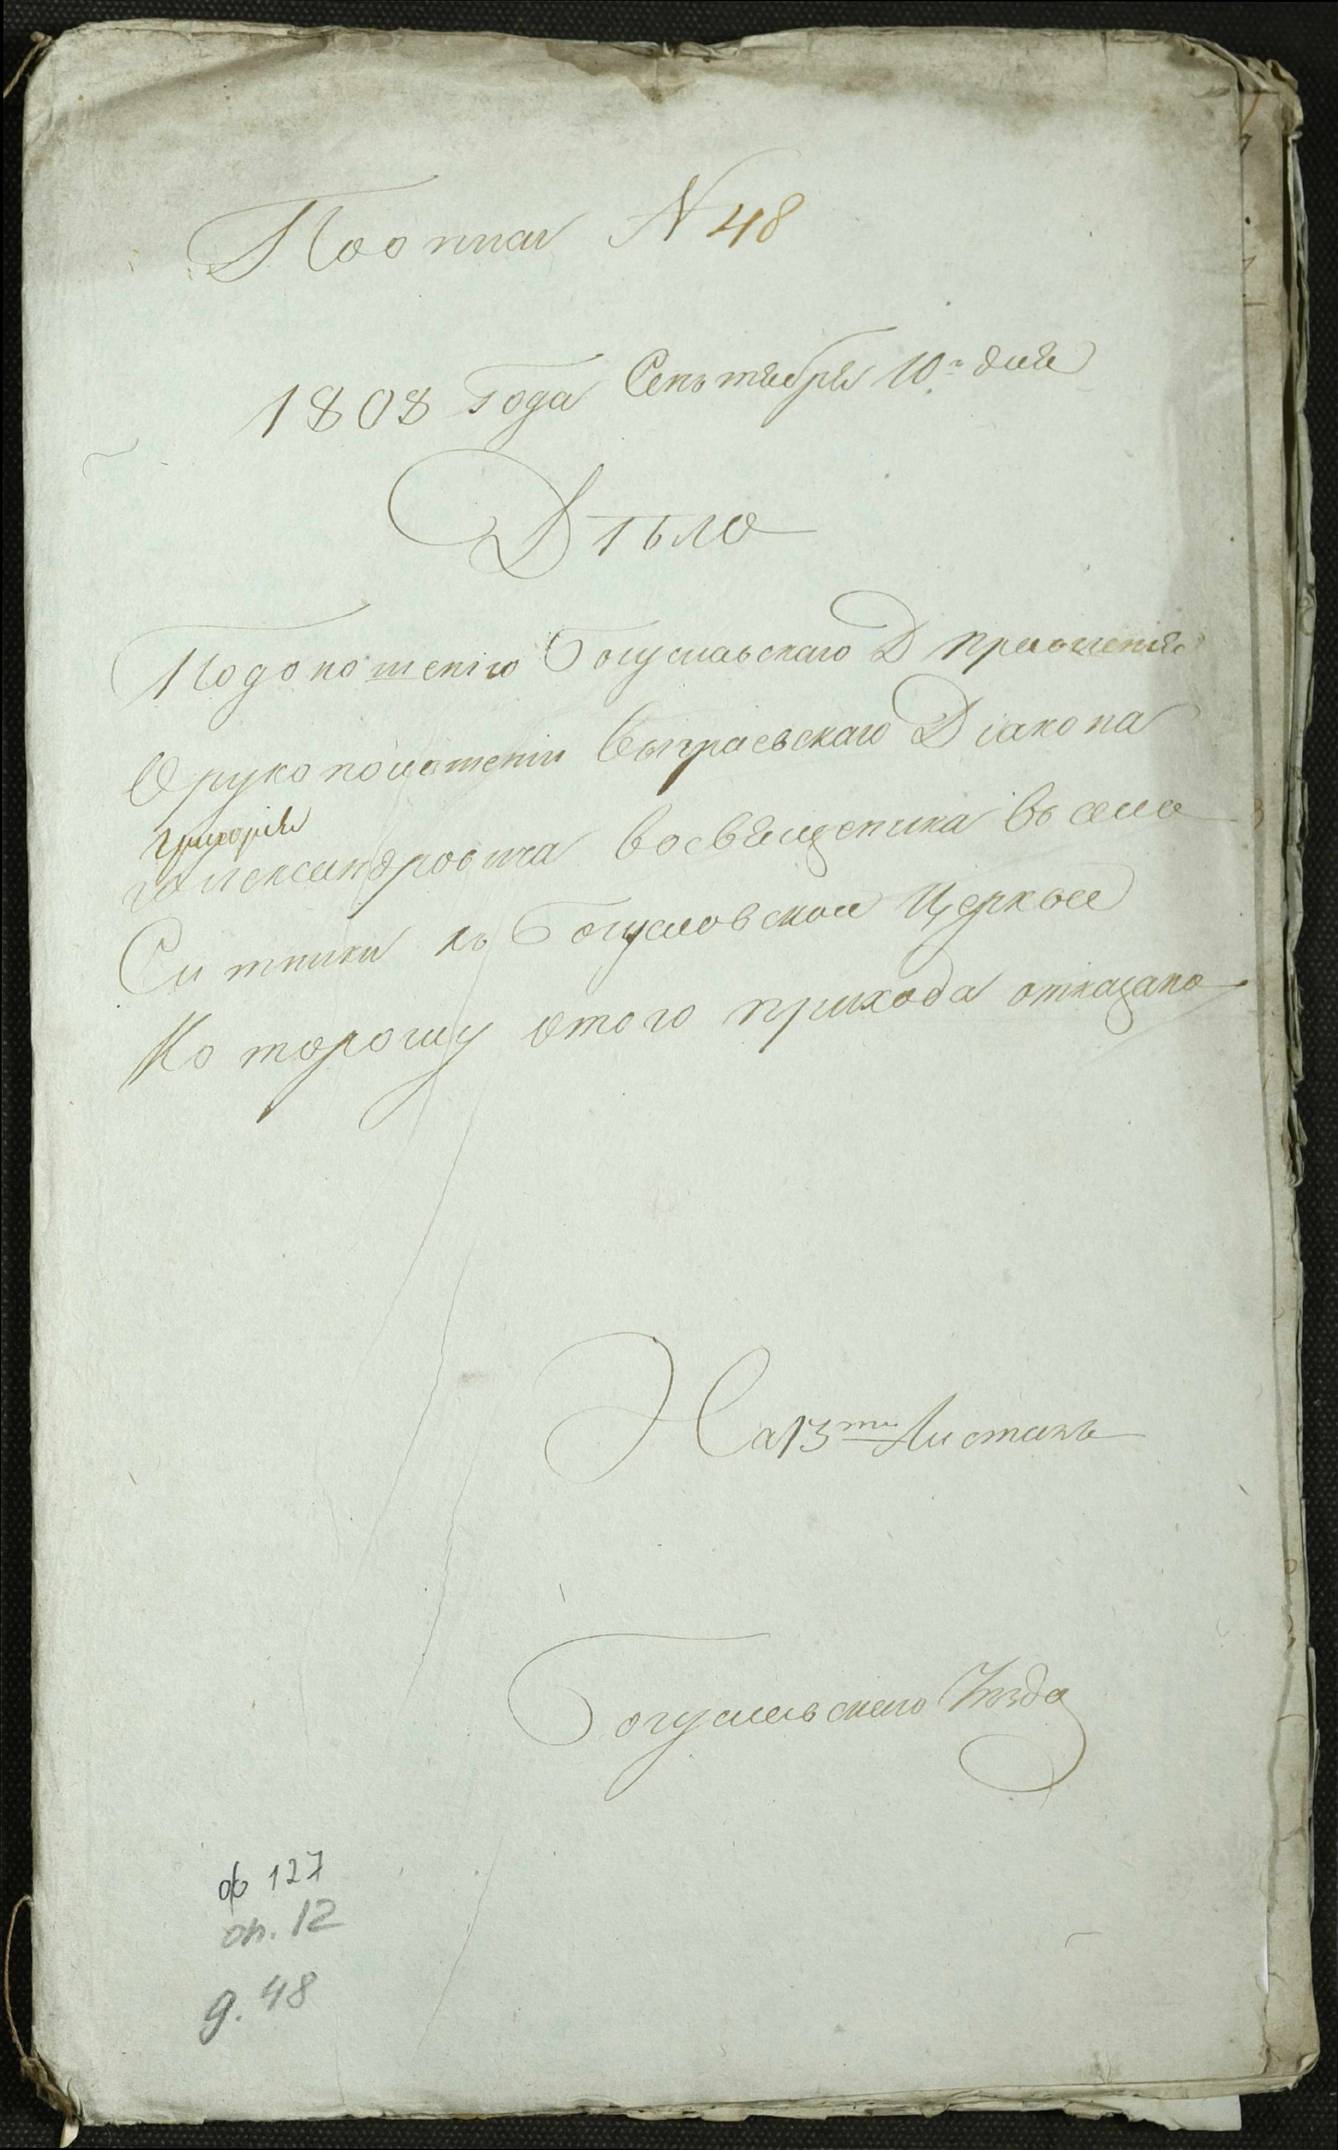 По описи N 48
1808 Года Сентября 10го дня
Дѣло
По доношенію Богуславскаго Д Правленія
О рукоположеніи Діакона
Григорія
Александровича во священика въ село
Ситники къ Богусловской Церкве
Которому отого прихода отказано
На 13ти Листахъ
Богуславскаго Уѣзда
ф 127
оп. 12
д. 48